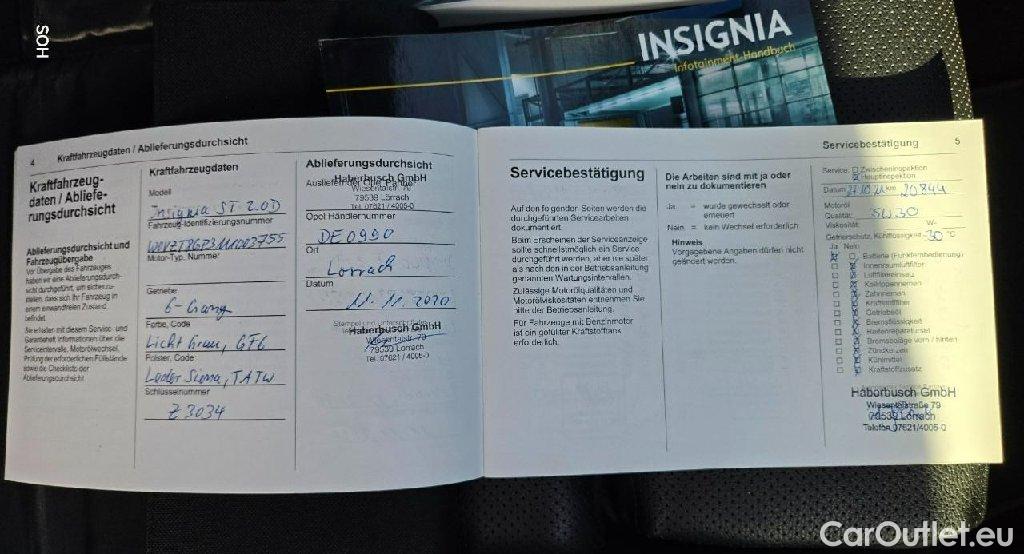 SOH
INSIGNIA
Infotainment Handbuch
4 Kraftfahrzeugdaten / Ablieferungsdurchsicht
Kraftfahrzeug-
daten / Abliefe-
rungsdurchsicht
Ablieferungsdurchsicht und
Fahrzeugübergabe
Vor Übergabe des Fahrzeuges
haben wir eine Ablieferungsdurch-
sicht durchgeführt, um sicherzu-
stellen, dass sich Ihr Fahrzeug in
einem einwandfreien Zustand
befindet.
Sie erhalten mit diesem Service- und
Garantieheft Informationen über die
Serviceintervalle, Motorölwechsel,
Prüfung der erforderlichen Füllstände
sowie die Checkliste der
Ablieferungsdurchsicht.
Kraftfahrzeugdaten
Modell
Insignia ST 2.0D
Fahrzeug-Identifizierungsnummer
Motor-Typ, Nummer
Getriebe
6-Gang
Farbe, Code
Polster, Code
Leder Siena, TATW
Schlüsselnummer
Z 3034
Ablieferungsdurchsicht
Haberbusch GmbH
Wiesentalstr. 79
79539 Lörrach
Tel. 07621 / 4005-0
Opel Händlernummer
DE0990
Ort
Lörrach
Datum
11. 11. 2010
Haberbusch GmbH
Wiesentalstr. 79
79539 Lörrach
Tel. 07621 / 4005-0
Servicebestätigung 5
Servicebestätigung
Auf den folgenden Seiten werden die
durchgeführten Servicearbeiten
dokumentiert.
Beim Erscheinen der Serviceanzeige
sollte schnellstmöglich ein Service
durchgeführt werden, aber nie später
als nach den in der Betriebsanleitung
genannten Wartungsintervallen.
Zulässige Motorölqualitäten und
Motorölviskositäten entnehmen Sie
bitte der Betriebsanleitung.
Für Fahrzeuge mit Benzinmotor
ist ein gefülltes Kraftstoffans
erforderlich.
Die Arbeiten sind mit ja oder
nein zu dokumentieren
Ja = wurde gewechselt oder
erneuert
Nein = kein Wechsel erforderlich
Hinweis
Vorgegebene Angaben dürfen nicht
geändert werden.
Service: Zwischeninspektion
Hauptinspektion
Datum km 20844
Motoröl
Qualität: 5W30
Viskosität: W-
Gefrierschutz, Kühlflüssigkeit -30 °C
Ja Nein
Batterie (Funkfernbedienung)
Innenraumluftfilter
Luftfiltereinsatz
Keilrippenriemen
Zahnriemen
Kraftstofffilter
Getriebeöl
Bremsflüssigkeit
Reifenreparaturset
Bremsbeläge vorn / hinten
Zündkerzen
Kühlmittel
Kraftstoffzusatz
Haberbusch GmbH
Wiesentalstraße 79
79539 Lörrach
Telefon 07621/4005-0
CarOutlet.eu